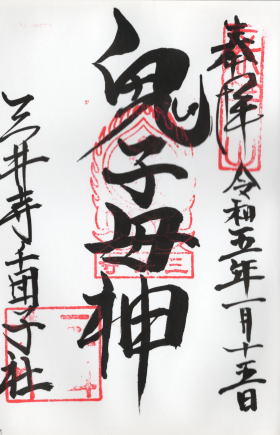 奉拝
令和五年一月十五日
鬼子母神
三井寺千団子社